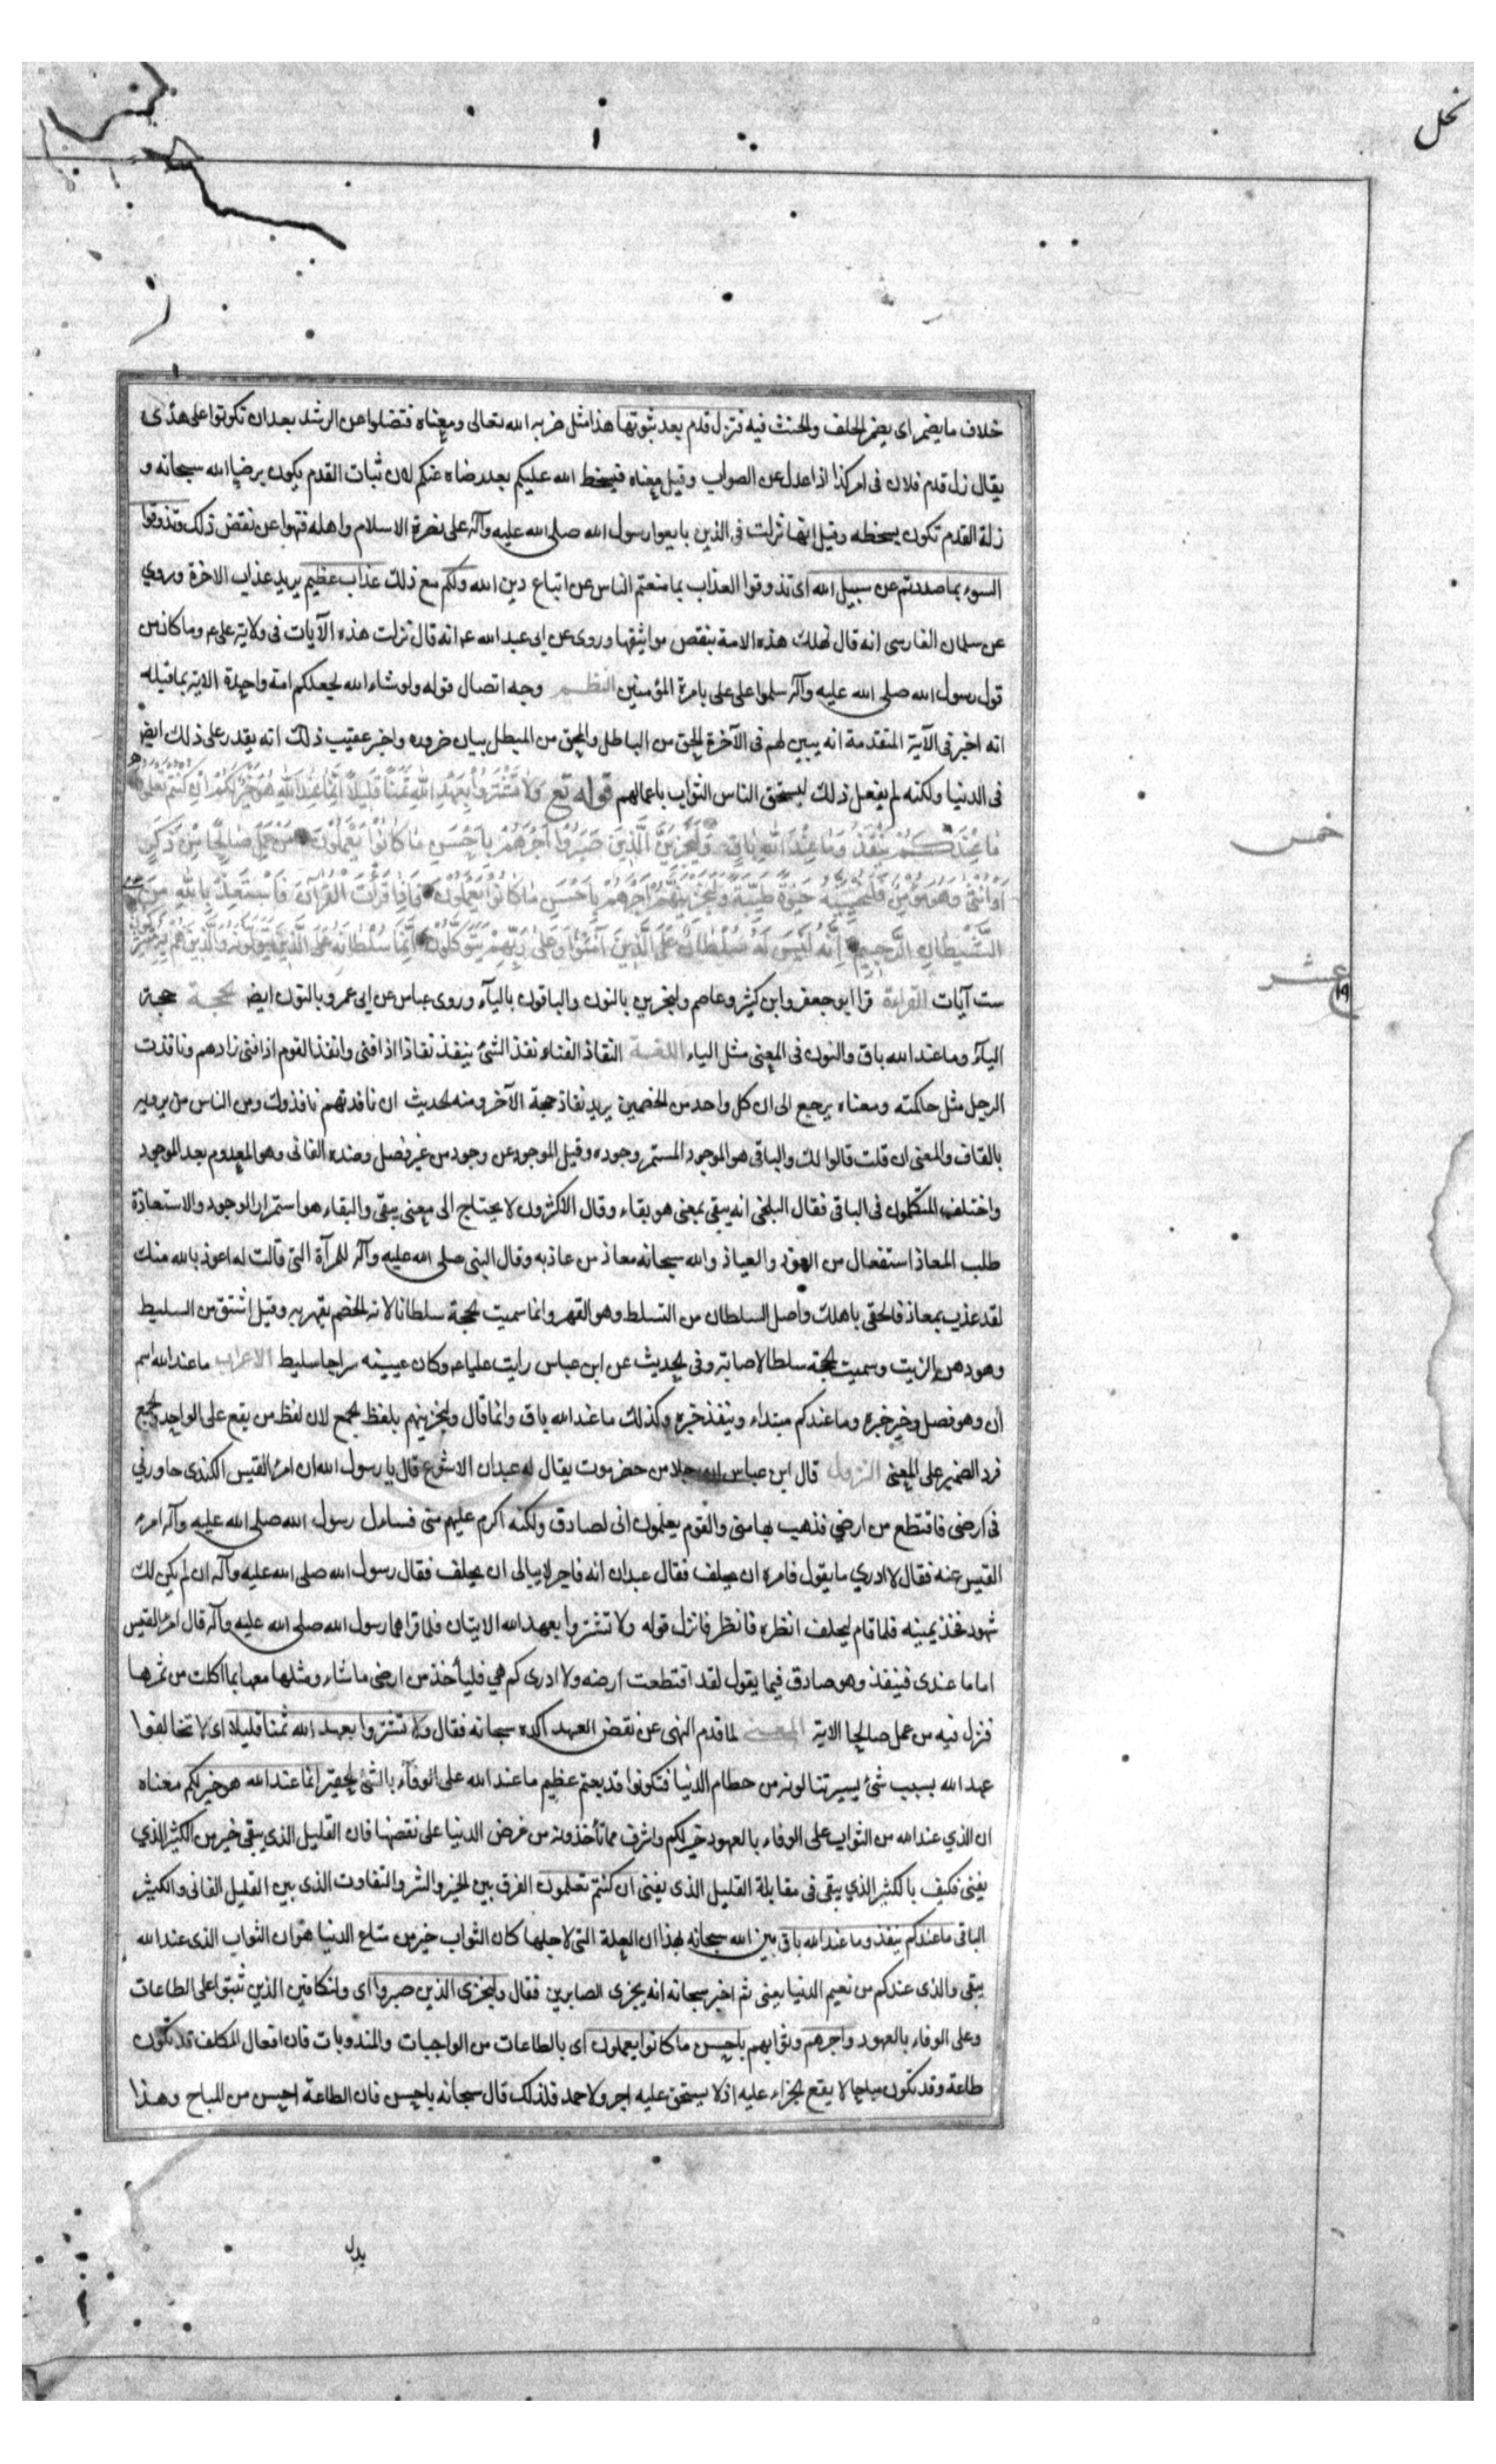 نحل
خلاف ما يضمر اى يضمر الحلف والحنث فيه فتزل قدم بعد ثبوتها هذا مثل ضربه الله تعالى ومعناه فتضلوا عن الرشد بعد ان تكونوا على هدى
يقال زل قدم فلان فى امر كذا اذا عدل عن الصواب وقيل معناه فيسخط الله عليكم بعد رضاه عنكم لان ثبات القدم يكون برضا الله سبحانه و
زلة القدم تكون بسخطه وقيل انها نزلت فى الذين بايعوا رسول الله صلى الله عليه وآله على نصرة الاسلام واهله فنهوا عن نقض ذلك وتذوقوا
السوء بما صددتم عن سبيل الله اى تذوقوا العذاب بما منعتم الناس عن اتباع دين الله ولكم مع ذلك عذاب عظيم يريد عذاب الاخرة وروي
عن سلمان الفارسى انه قال تهلك هذه الامة بنقض مواثيقها وروى عن ابى عبد الله ع انه قال نزلت هذه الآيات فى ولاية على ع وما كان من
قول رسول الله صلى الله عليه وآله سلموا على على بامرة المؤمنين النظم وجه اتصال قوله ولو شاء الله لجعلكم امة واحدة الاية بما قبله
انه اخبر فى الآية المتقدمة انه يبين لهم فى الآخرة الحق من الباطل والمحق من المبطل بيان ضرورة واخبر عقيب ذلك انه يقدر على ذلك ايض
فى الدنيا ولكنه لم يفعل ذلك ليستحق الناس الثواب باعمالهم قوله تع وَلَا تَشْتَرُوا بِعَهْدِ اللَّهِ ثَمَنًا قَلِيلًا إِنَّمَا عِنْدَ اللَّهِ هُوَ خَيْرٌ لَكُمْ إِنْ كُنْتُمْ تعلمون
مَا عِنْدَكُمْ يَنْفَذُ وَمَا عِنْدَ اللَّهِ بَاقٍ وَلَيَجْزِيَنَّ الَّذِينَ صَبَرُوا أَجْرَهُمْ بِأَحْسَنِ مَا كَانُوا يَعْمَلُونَ مَنْ عَمِلَ صَالِحًا مِنْ ذَكَرٍ
خمس
أَوْ أُنْثَى وَهُوَ مُؤْمِنٌ فَلَنُحْيِيَنَّهُ حَيَوةً طَيِّبَةً وَلَنَجْزِيَنَّهُمْ أَجْرَهُمْ بِأَحْسَنِ مَا كَانُوا يَعْمَلُونَ فَإِذَا قَرَأْتَ الْقُرْآنَ فَاسْتَعِذْ بِاللَّهِ مِنَ
الشَّيْطَانِ الرَّجِيمِ إِنَّهُ لَيْسَ لَهُ سُلْطَانٌ عَلَى الَّذِينَ آمَنُوا وَعَلَى رَبِّهِمْ يَتَوَكَّلُونَ إِنَّمَا سُلْطَانُهُ عَلَى الَّذِينَ يَتَوَلَّوْنَهُ وَالَّذِينَ هُمْ بِهِ مُشْرِكُونَ
عشر
ست آيات القراءة قرا ابو جعفر وابن كثير وعاصم ولنجزين بالنون والباقون بالياء وروى عباس عن ابى عمرو بالنون ايض الحجة حجة
الياء وما عند الله باق والنون فى المعنى مثل الياء اللغة النفاذ الفناء نفذ الشئ ينفذ نفاذا اذا فنى وانفذ القوم اذا فنى زادهم ونافذت
الرجل مثل حاكمته ومعناه يرجع الى ان كل واحد من الخصمين يريد نفاذ حجة الآخر ومنه الحديث ان نافدتهم نافذوك ومن الناس من يرويه
بالقاف والمعنى ان قلت قالوا لك والباقى هو الموجود المستمر وجوده وقيل الموجود عن وجود من غير فصل وضده الفانى وهو المعدوم بعد الموجود
واختلف المتكلمون فى الباقى فقال البلخى انه يبقى بمعنى هو بقاء وقال الاكثرون لا يحتاج الى معنى يبقى والبقاء هو استمرار الوجود والاستعاذة
طلب المعاذ استفعال من العوذ والعياذ والله سبحانه معاذ من عاذ به وقال النبى صلى الله عليه وآله للمرآة التى قالت له اعوذ بالله منك
لقد عذت بمعاذ فالحقى باهلك واصل السلطان من التسلط وهو القهر وانما سميت الحجة سلطانا لانه الخصم يقهر به وقيل اشتق من السليط
وهو دهن الزيت وسميت الحجة سلطا لاضاءته وفى الحديث عن ابن عباس رايت عليا ع وكان عيينيه سراجا سليط الاعراب ما عند الله اسم
أن وهو فصل وخير خبره وما عندكم مبتداء وينفذ خبره وكذلك ما عند الله باق وانما قال ولنجزينهم بلفظ الجمع لان لفظ من يقع على الواحد والجمع
فرد الضمير على المعنى النزول قال ابن عباس ان رجلا من حضرموت يقال له عبدان الاشوع قال يا رسول الله ان امرء القيس الكندى جاورني
فى ارضى فاقتطع من ارضى فذهب بها منى والقوم يعلمون انى لصادق ولكنه اكرم عليهم منى فسال رسول الله صلى الله عليه وآله امرء
القيس عنه فقال لا ادري ما يقول فامره ان يحلف فقال عبدان انه فاجر لا يبالى ان يحلف فقال رسول الله صلى الله عليه وآله ان لم يكن لك
شهود فخذ يمينه فلما قام ليحلف انظره فانظر فانزل قوله ولا تشتروا بعهد الله الايتان فلما قراهما رسول الله صلى الله عليه وآله قال امرء القيس
اما ما عندى فينفذ وهو صادق فيما يقول لقد اقتطعت ارضه ولا ادرى كم هي فليأخذ من ارضى ما شاء ومثلها معها بما اكلت من ثمرها
فنزل فيه من عمل صالحا الاية المعنى لما قدم النهى عن نقض العهد اكده سبحانه فقال ولا تشتروا بعهد الله ثمنا قليلا اى لا تخالفوا
عهد الله بسبب شئ يسير تنالونه من حطام الدنيا فتكونوا قد بعتم عظيم ما عند الله على الوفاء بالشئ الحقير انما عند الله هو خير لكم معناه
ان الذي عند الله من الثواب على الوفاء بالعهود خير لكم واشرف مما تأخذونه من عرض الدنيا على نقضها فان القليل الذي يبقى خير من الكثير الذي
يفنى فكيف بالكثير الذي يبقى فى مقابلة القليل الذى يفنى ان كنتم تعلمون الفرق بين الخير والشر والتفاوت الذى بين القليل الفانى والكثير
الباقى ما عندكم ينفذ وما عند الله باق بين الله سبحانه بهذا ان العلة التى لاجلها كان الثواب خير من متاع الدنيا هو ان الثواب الذى عند الله
يبقى والذى عندكم من نعيم الدنيا يفنى ثم اخبر سبحانه انه يجزى الصابرين فقال وليجزى الذين صبروا اى ولنكافين الذين ثبتوا على الطاعات
وعلى الوفاء بالعهود واجرهم وثوابهم باحسن ما كانوا يعملون اى بالطاعات من الواجبات والمندوبات فان افعال المكلف قد تكون
طاعة وقد تكون مباحا لا يقع الجزاء عليه اذ لا يستحق عليه اجر ولا حمد فلذلك قال سبحانه باحسن فان الطاعة احسن من المباح وهذا
يدل